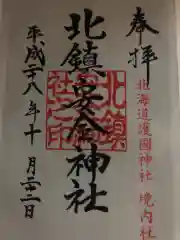 奉拝
北海道護國神社 境内社
北鎮安全神社
北鎮安全神社印
平成二十八年十月二十二日